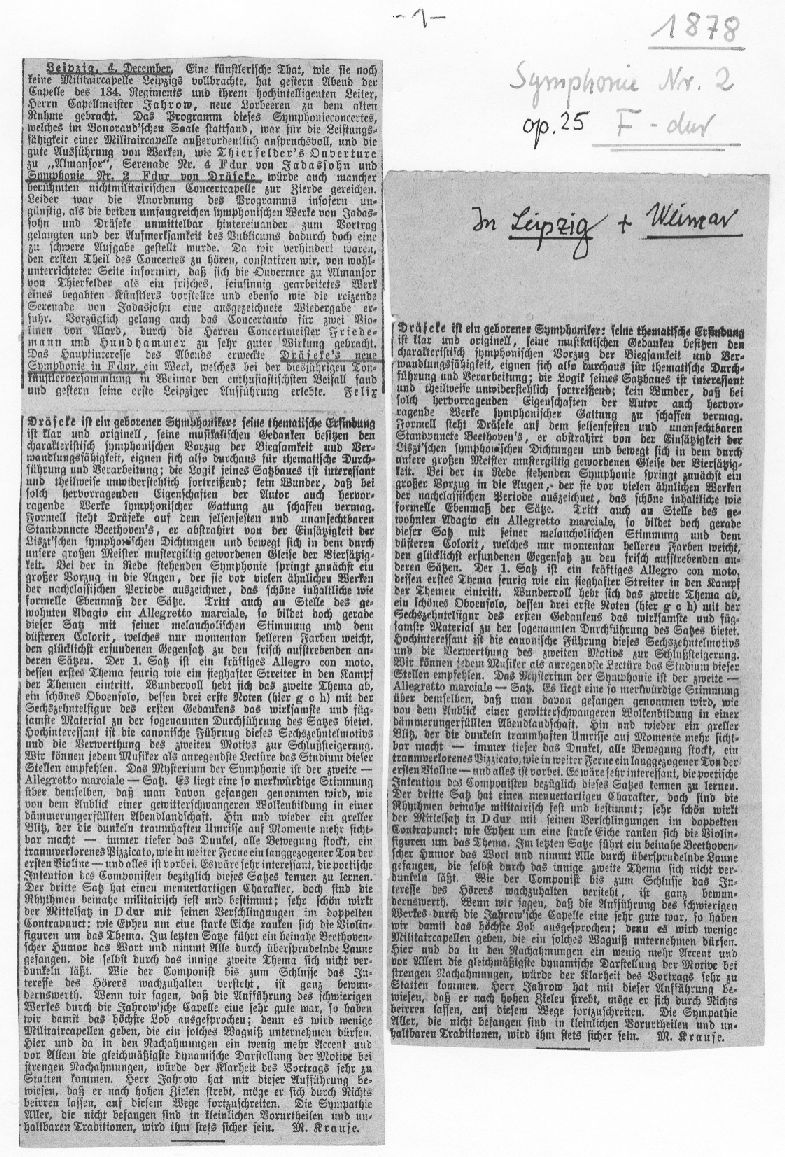 - 1 -
1878
Symphonie Nr. 2
op. 25 F-dur
Leipzig, 4. December. Eine künstlerische That, wie sie noch
keine Militaircapelle Leipzigs vollbrachte, hat gestern Abend der
Capelle des 134. Regiments und ihrem hochintelligenten Leiter,
Herrn Capellmeister Jahrow, neue Lorbeeren zu dem alten
Ruhme gebracht. Das Programm dieses Symphonieconcertes,
welches im Bonorand'schen Saale stattfand, war für die Leistungs-
fähigkeit einer Militaircapelle außerordentlich anspruchsvoll, und die
gute Ausführung von Werken, wie Thierfelder's Ouverture
zu „Almansor", Serenade Nr. 4 Fdur von Jadassohn und
Symphonie Nr. 2 Fdur von Dräseke, würde auch mancher
berühmten nichtmilitairischen Concertcapelle zur Zierde gereichen.
Leider war die Anordnung des Programms insofern un-
günstig, als die beiden umfangreichen symphonischen Werke von Jadas-
sohn und Dräseke unmittelbar hintereinander zum Vortrag
gelangten und der Aufmerksamkeit des Publicums dadurch doch eine
zu schwere Aufgabe gestellt wurde. Da wir verhindert waren,
den ersten Theil des Concertes zu hören, constatiren wir, von wohl-
unterrichteter Seite informirt, daß sich die Ouverture zu Almansor
von Thierfelder als ein frisches, feinsinnig gearbeitetes Werk
eines begabten Künstlers vorstellte und ebenso wie die reizende
Serenade von Jadassohn eine ausgezeichnete Wiedergabe er-
fuhr. Vorzüglich gelang auch das Concertante für zwei Vio-
linen von Alard, durch die Herren Concertmeister Friede-
mann und Hundhammer zu sehr guter Wirkung gebracht.
Das Hauptinteresse des Abends erweckte Dräseke's neue
Symphonie in Fdur, ein Werk, welches bei der diesjährigen Ton-
künstlerversammlung in Weimar den enthusiastischsten Beifall fand
und gestern seine erste Leipziger Aufführung erlebte. Felix
Dräseke ist ein geborener Symphoniker: seine thematische Erfindung
ist klar und originell, seine musikalischen Gedanken besitzen den
charakteristisch symphonischen Vorzug der Biegsamkeit und Ver-
wandlungsfähigkeit, eignen sich also durchaus für thematische Durch-
führung und Verarbeitung; die Logik seines Satzbaues ist interessant
und theilweise unwiderstehlich fortreißend; kein Wunder, daß bei
solch hervorragenden Eigenschaften der Autor auch hervor-
ragende Werke symphonischer Gattung zu schaffen vermag.
Formell steht Dräseke auf dem felsenfesten und unanfechtbaren
Standpuncte Beethoven's, er abstrahirt von der Einsätzigkeit der
Liszt'schen symphonischen Dichtungen und bewegt sich in dem durch
unsere großen Meister mustergiltig gewordenen Gleise der Viersätzig-
keit. Bei der in Rede stehenden Symphonie springt zunächst ein
großer Vorzug in die Augen, der sie vor vielen ähnlichen Werken
der nachclassischen Periode auszeichnet, das schöne inhaltliche wie
formelle Ebenmaß der Sätze. Tritt auch an Stelle des ge-
wohnten Adagio ein Allegretto marciale, so bildet doch gerade
dieser Satz mit seiner melancholischen Stimmung und dem
düsteren Colorit, welches nur momentan helleren Farben weicht,
den glücklichst erfundenen Gegensatz zu den frisch aufstrebenden an-
deren Sätzen. Der 1. Satz ist ein kräftiges Allegro con moto,
dessen erstes Thema feurig wie ein sieghafter Streiter in den Kampf
der Themen eintritt. Wundervoll hebt sich das zweite Thema ab,
ein schönes Oboensolo, dessen drei erste Noten (hier g c h) mit der
Sechszehntelfigur des ersten Gedankens das wirksamste und füg-
samste Material zu der sogenannten Durchführung des Satzes bietet.
Hochinteressant ist die canonische Führung dieses Sechszehntelmotivs
und die Verwerthung des zweiten Motivs zur Schlußsteigerung.
Wir können jedem Musiker als anregendste Lectüre das Studium dieser
Stellen empfehlen. Das Mysterium der Symphonie ist der zweite —
Allegretto marciale — Satz. Es liegt eine so merkwürdige Stimmung
über demselben, daß man davon gefangen genommen wird, wie
von dem Anblick einer gewitterschwangeren Wolkenbildung in einer
dämmerungerfüllten Abendlandschaft. Hin und wieder ein greller
Blitz, der die dunkeln traumhaften Umrisse auf Momente mehr sicht-
bar macht — immer tiefer das Dunkel, alle Bewegung stockt, ein
traumverlorenes Pizzicato, wie in weiter Ferne ein langgezogener Ton der
ersten Violine — und alles ist vorbei. Es wäre sehr interessant, die poetische
Intention des Componisten bezüglich dieses Satzes kennen zu lernen.
Der dritte Satz hat einen menuetartigen Charakter, doch sind die
Rhythmen beinahe militairisch fest und bestimmt; sehr schön wirkt
der Mittelsatz in Ddur mit seinen Verschlingungen im doppelten
Contrapunct: wie Epheu um eine starke Eiche ranken sich die Violin-
figuren um das Thema. Im letzten Satze führt ein beinahe Beethoven-
scher Humor das Wort und nimmt Alle durch übersprudelnde Laune
gefangen, die selbst durch das innige zweite Thema sich nicht ver-
dunkeln läßt. Wie der Componist bis zum Schlusse das In-
teresse des Hörers wachzuhalten versteht, ist ganz bewun-
dernswerth. Wenn wir sagen, daß die Aufführung des schwierigen
Werkes durch die Jahrow'sche Capelle eine sehr gute war, so haben
wir damit das höchste Lob ausgesprochen; denn es wird wenige
Militaircapellen geben, die ein solches Wagniß unternehmen dürfen.
Hier und da in den Nachahmungen ein wenig mehr Accent und
vor Allem die gleichmäßigste dynamische Darstellung der Motive bei
strengen Nachahmungen, würde der Klarheit des Vortrags sehr zu
Statten kommen. Herr Jahrow hat mit dieser Aufführung be-
wiesen, daß er nach hohen Zielen strebt, möge er sich durch Nichts
beirren lassen, auf diesem Wege fortzuschreiten. Die Sympathie
Aller, die nicht befangen sind in kleinlichen Vorurtheilen und un-
haltbaren Traditionen, wird ihm stets sicher sein. M. Krause.
In Leipzig + Weimar
Dräseke ist ein geborener Symphoniker: seine thematische Erfindung
ist klar und originell, seine musikalischen Gedanken besitzen den
charakteristisch symphonischen Vorzug der Biegsamkeit und Ver-
wandlungsfähigkeit, eignen sich also durchaus für thematische Durch-
führung und Verarbeitung; die Logik seines Satzbaues ist interessant
und theilweise unwiderstehlich fortreißend; kein Wunder, daß bei
solch hervorragenden Eigenschaften der Autor auch hervor-
ragende Werke symphonischer Gattung zu schaffen vermag.
Formell steht Dräseke auf dem felsenfesten und unanfechtbaren
Standpuncte Beethoven's, er abstrahirt von der Einsätzigkeit der
Liszt'schen symphonischen Dichtungen und bewegt sich in dem durch
unsere großen Meister mustergiltig gewordenen Gleise der Viersätzig-
keit. Bei der in Rede stehenden Symphonie springt zunächst ein
großer Vorzug in die Augen, der sie vor vielen ähnlichen Werken
der nachclassischen Periode auszeichnet, das schöne inhaltliche wie
formelle Ebenmaß der Sätze. Tritt auch an Stelle des ge-
wohnten Adagio ein Allegretto marciale, so bildet doch gerade
dieser Satz mit seiner melancholischen Stimmung und dem
düsteren Colorit, welches nur momentan helleren Farben weicht,
den glücklichst erfundenen Gegensatz zu den frisch aufstrebenden an-
deren Sätzen. Der 1. Satz ist ein kräftiges Allegro con moto,
dessen erstes Thema feurig wie ein sieghafter Streiter in den Kampf
der Themen eintritt. Wundervoll hebt sich das zweite Thema ab,
ein schönes Oboensolo, dessen drei erste Noten (hier g c h) mit der
Sechszehntelfigur des ersten Gedankens das wirksamste und füg-
samste Material zu der sogenannten Durchführung des Satzes bietet.
Hochinteressant ist die canonische Führung dieses Sechszehntelmotivs
und die Verwerthung des zweiten Motivs zur Schlußsteigerung.
Wir können jedem Musiker als anregendste Lectüre das Studium dieser
Stellen empfehlen. Das Mysterium der Symphonie ist der zweite —
Allegretto marciale — Satz. Es liegt eine so merkwürdige Stimmung
über demselben, daß man davon gefangen genommen wird, wie
von dem Anblick einer gewitterschwangeren Wolkenbildung in einer
dämmerungerfüllten Abendlandschaft. Hin und wieder ein greller
Blitz, der die dunkeln traumhaften Umrisse auf Momente mehr sicht-
bar macht — immer tiefer das Dunkel, alle Bewegung stockt, ein
traumverlorenes Pizzicato, wie in weiter Ferne ein langgezogener Ton der
ersten Violine — und alles ist vorbei. Es wäre sehr interessant, die poetische
Intention des Componisten bezüglich dieses Satzes kennen zu lernen.
Der dritte Satz hat einen menuetartigen Charakter, doch sind die
Rhythmen beinahe militairisch fest und bestimmt; sehr schön wirkt
der Mittelsatz in Ddur mit seinen Verschlingungen im doppelten
Contrapunct: wie Epheu um eine starke Eiche ranken sich die Violin-
figuren um das Thema. Im letzten Satze führt ein beinahe Beethoven-
scher Humor das Wort und nimmt Alle durch übersprudelnde Laune
gefangen, die selbst durch das innige zweite Thema sich nicht ver-
dunkeln läßt. Wie der Componist bis zum Schlusse das In-
teresse des Hörers wachzuhalten versteht, ist ganz bewun-
dernswerth. Wenn wir sagen, daß die Aufführung des schwierigen
Werkes durch die Jahrow'sche Capelle eine sehr gute war, so haben
wir damit das höchste Lob ausgesprochen; denn es wird wenige
Militaircapellen geben, die ein solches Wagniß unternehmen dürfen.
Hier und da in den Nachahmungen ein wenig mehr Accent und
vor Allem die gleichmäßigste dynamische Darstellung der Motive bei
strengen Nachahmungen, würde der Klarheit des Vortrags sehr zu
Statten kommen. Herr Jahrow hat mit dieser Aufführung be-
wiesen, daß er nach hohen Zielen strebt, möge er sich durch Nichts
beirren lassen, auf diesem Wege fortzuschreiten. Die Sympathie
Aller, die nicht befangen sind in kleinlichen Vorurtheilen und un-
haltbaren Traditionen, wird ihm stets sicher sein. M. Krause.